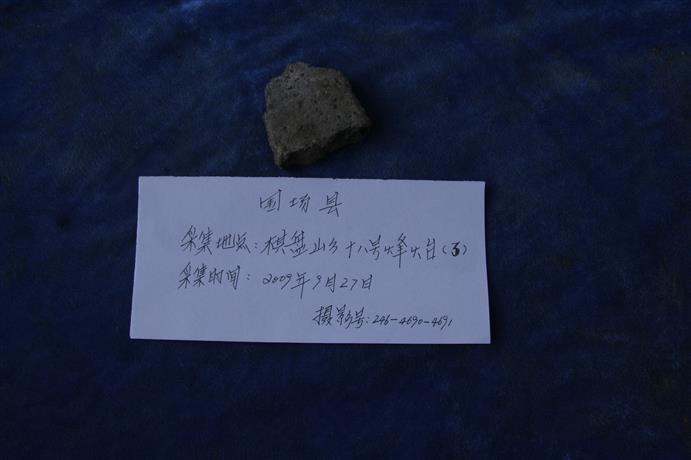 围场县
采集地点：棋盘山乡十八号烽火台（3）
采集时间：2009年9月27日
摄影号：246-4690-4691